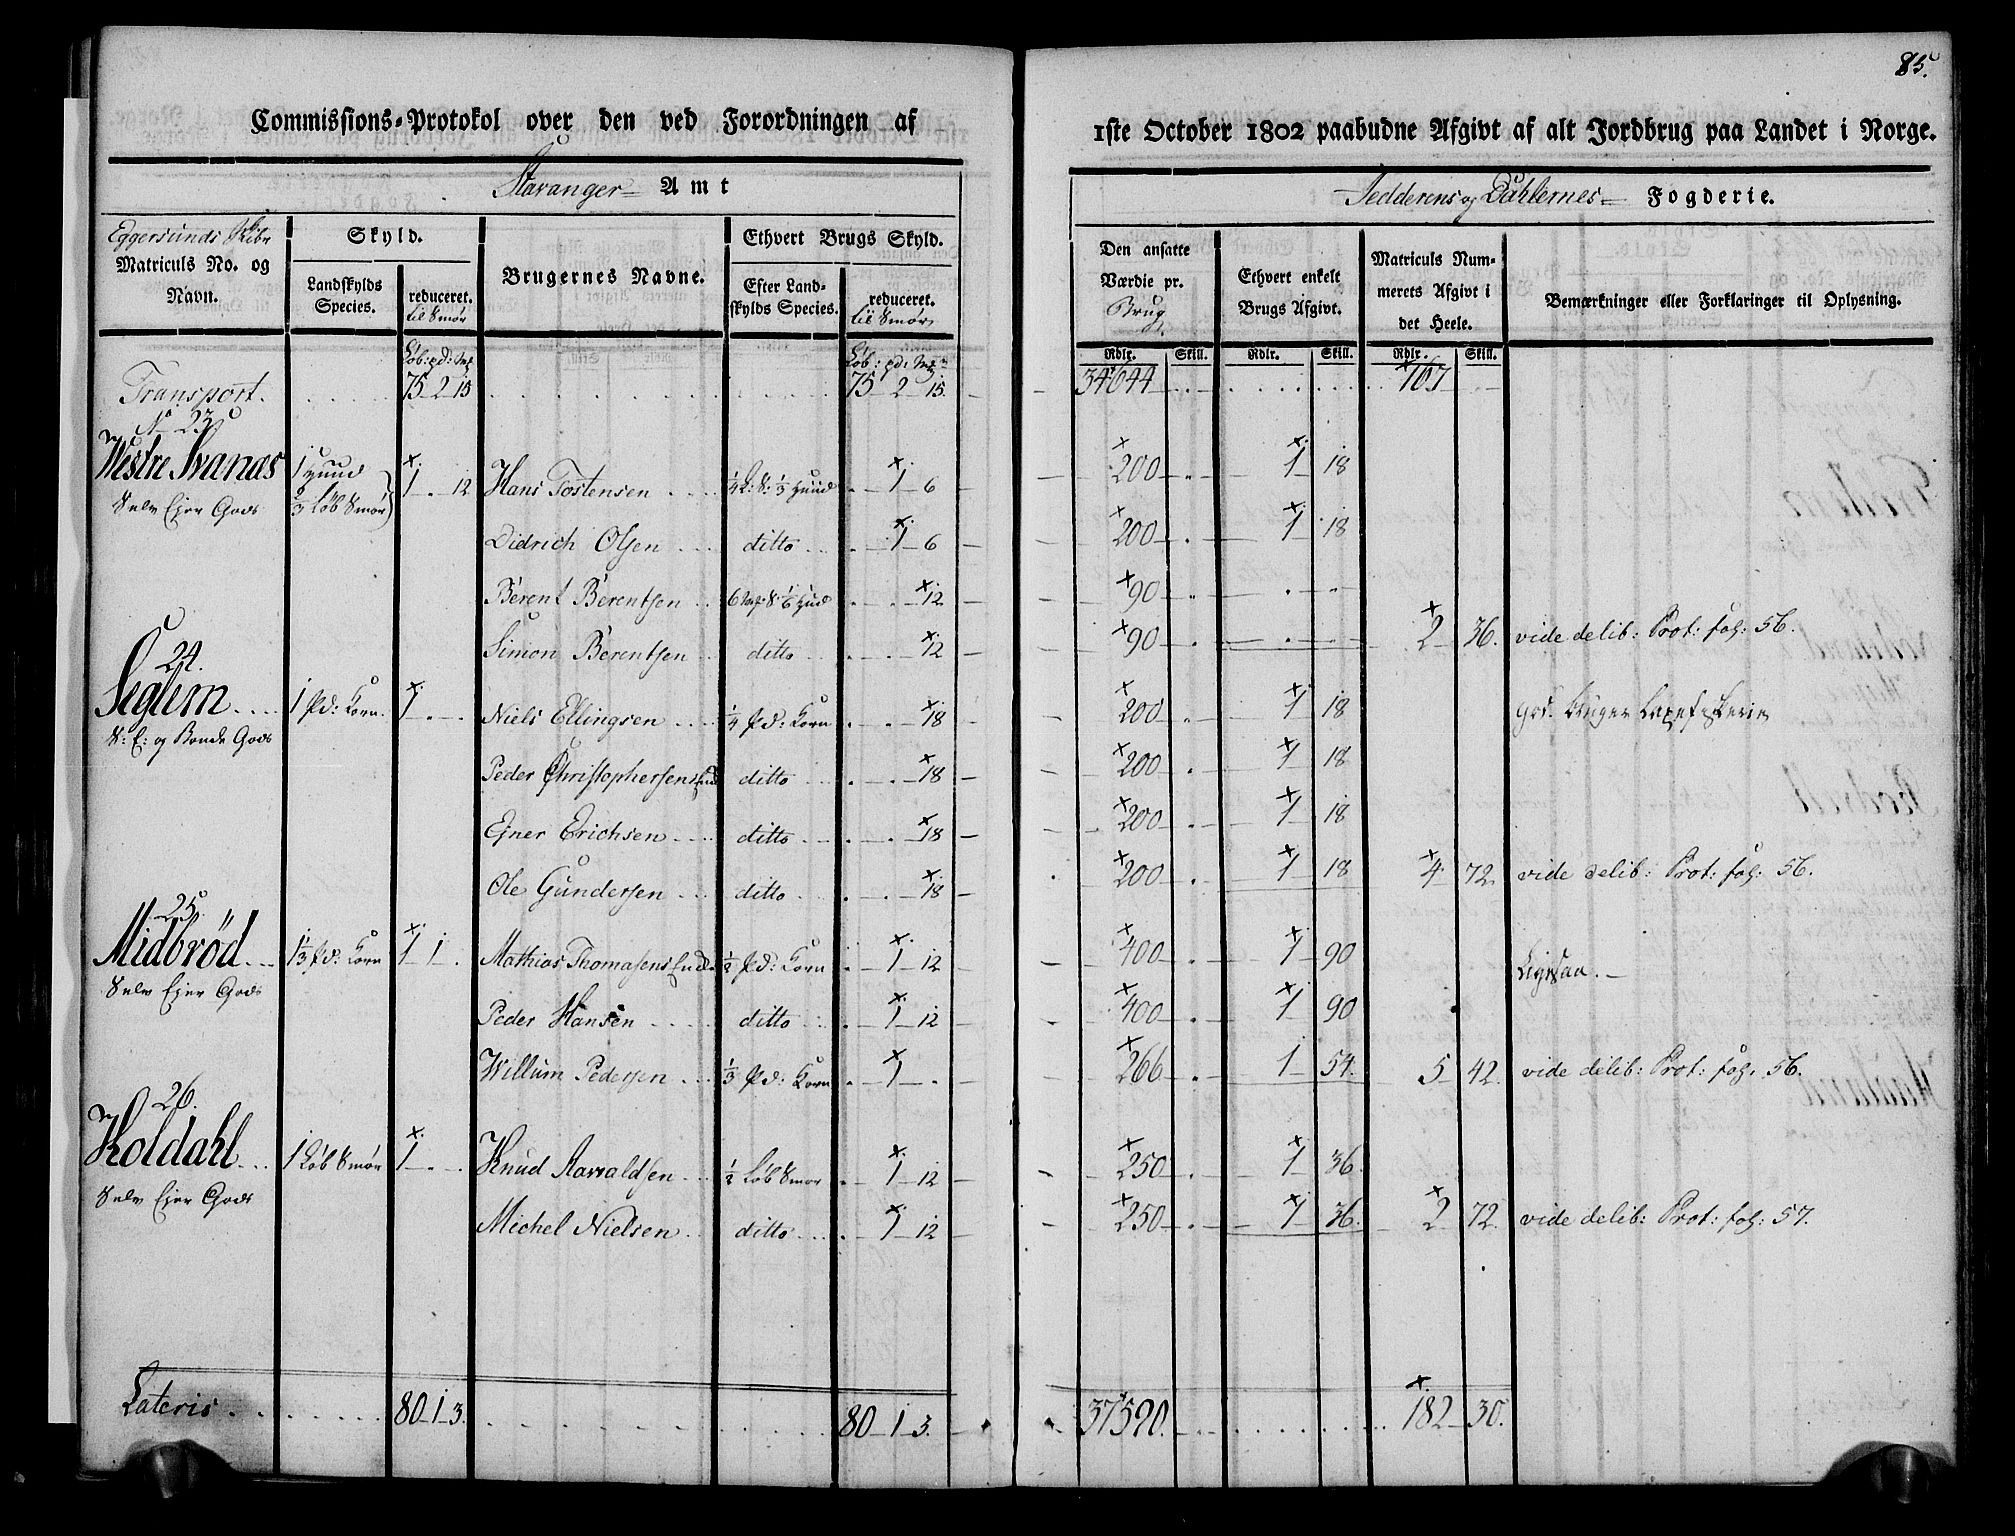 85.
Commissions-Protokol over den ved Forordningen af 1ste October 1802 paabudne Afgivt af alt Jordbrug paa Landet i Norge.
Stavanger Amt
Jedderens og Dahlernes Fogderie.
Eggersunds
Matriculs No. og Navn.
Skyld.
Landskylds Species.
reduceret.
til Smør
Brugernes Navne.
Ethvert Brugs Skyld.
Efter Landskylds Species.
reduceret.
til Smør
Den ansatte Værdie pr. Brug
Ethvert enkelt Brugs Afgivt.
Matriculs Nummerets Afgivt i det Heele.
Bemærkninger eller Forklaringer til Oplysning.
Løb: pd: Mk Løb: pd: Mk Rdlr. Skill. Rdlr. Skill. Rdlr. Skill.
Transport. 75 2 15 75 2 15. 34644 167
No 23
Westre Svanæs 1 Huud 2/3 Løb Smør 1 . 12 Hans Tostensen 1/4 L: S: 1/3 Huud 1 6 200 1 18
Selv Ejer Gods
Didrich Olsen ditto 1 6 200 1 18
Berent Berentsen 6 S: 1/6 Huud 12 90
Simon Berentsen ditto 12 90 2 36. vide delib: Prot: fol: 56.
24.
Seglem 1 Pd: Korn. 1 Niels Ellingsen 1/4 Pd: Korn 18 200 1 18 god. Bruger Laxefiskerie
S: E: og Bonde Gods
Peder Christophersen ditto 18 200 1 18
Ejner Erichsen ditto 18 200 1 18
Ole Gundersen ditto 18 200 1 18 4 72. vide delib: Prot: fol: 56.
25.
Midbrød 1 1/3 Pd: Korn 1 1 Mathias Thomasens 1/2 Pd: Korn 1 12 400 1 90
Selv Ejer Gods
Peder Hansen ditto 1 12 400 1 90
Willum Pedersen 1/3 Pd: Korn 1 266 1 54. 5 42. vide delib: Prot: fol. 56.
26.
Koldahl 1 Løb Smør 1 Knud Aavaldsen 1/2 Løb Smør 1 12 250 1 36.
Selv Ejer Gods
Michel Nielsen ditto 1 12 250 1 36. 2 72. vide delib: Prot: fol: 57.
Lateris 80 1 3. 80 1 3. 37590. 182 30.